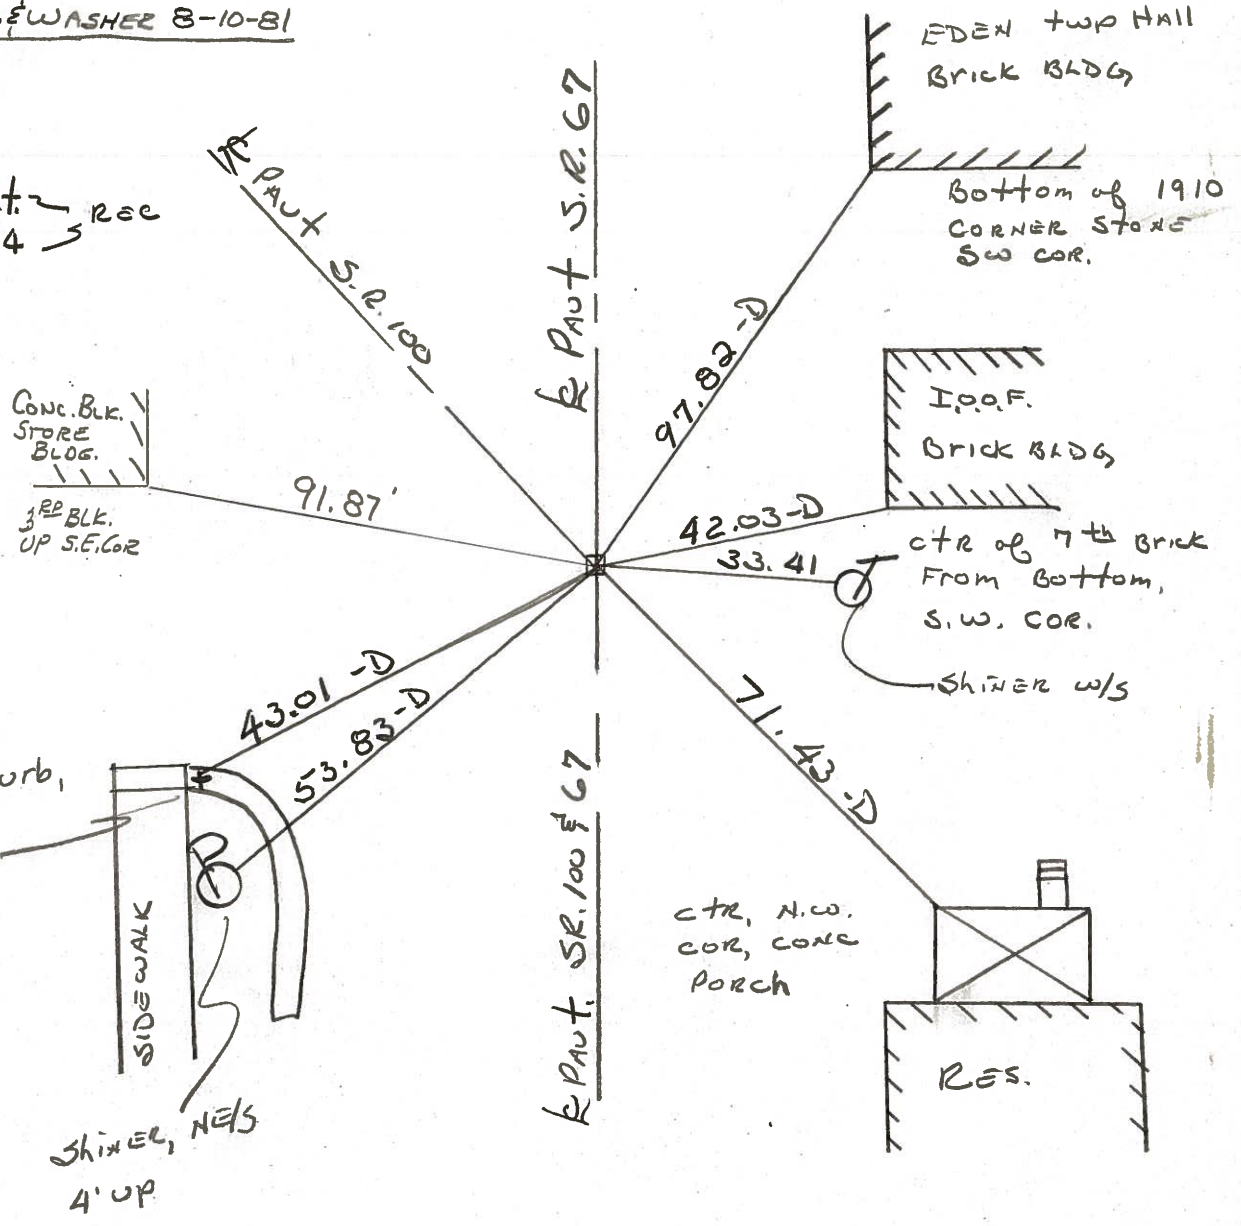 & WASHER 8-10-81
EDEN twp HALL
Brick BLDG
t. REC
4
℄ PAVt S.R. 100
℄ PAVt S.R. 67
Bottom of 1910
CORNER StONE
SW COR.
97.82-D
CONC. BLK.
STORE
BLDG.
3RD BLK.
UP S.E. COR
91.87'
I.O.O.F.
Brick BLDG
42.03-D
33.41
CtR of 7th Brick
From Bottom,
S.W. COR.
ShiNER W/S
43.01-D
53.83-D
71.43-D
urb,
SIDEWALK
℄ PAVt. SR. 100 & 67
CtR, N.W.
COR, CONC
PORCh
RES.
ShiNER, NE/S
4' UP